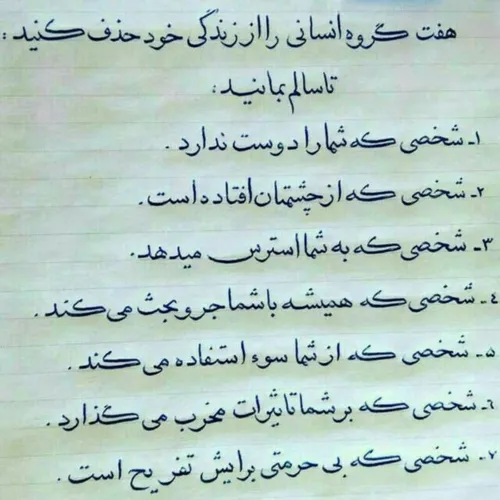 هفت گروه انسانی را از زندگی خود حذف کنید :
تا سالم بمانید :
۱- شخصی که شما را دوست ندارد .
۲- شخصی که از چشمتان افتاده است .
۳- شخصی که به شما استرس میدهد .
۴- شخصی که همیشه با شما جر و بحث می کند .
۵- شخصی که از شما سوء استفاده می کند .
۶- شخصی که بر شما تاثیرات مخرب می گذارد .
۷- شخصی که بی حرمتی برایش تفریح است .